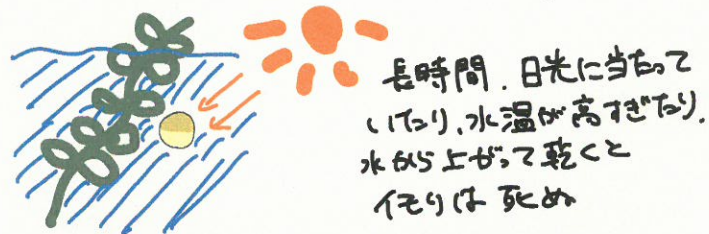 長時間、日光に当たって
いたり、水温が高すぎたり、
水から上がって乾くと
イモリは死ぬ